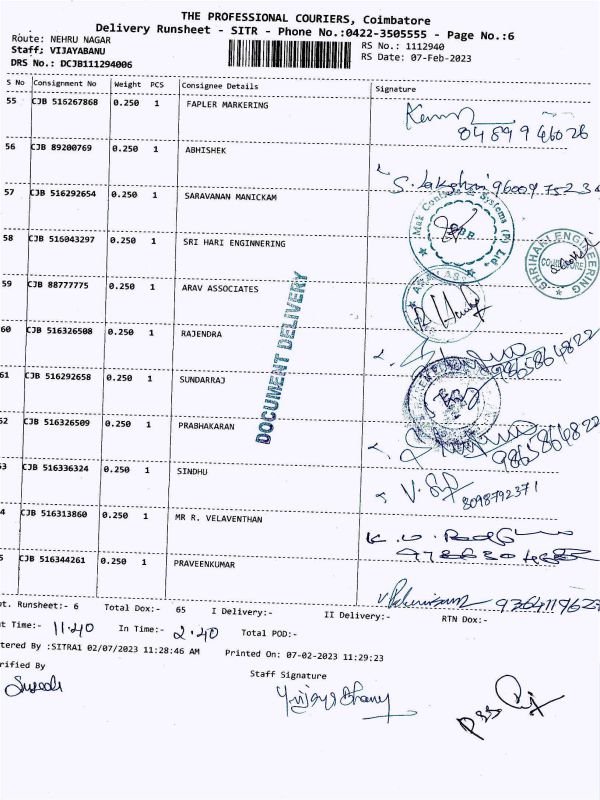 THE PROFESSIONAL COURIERS, Coimbatore
Delivery Runsheet - SITR - Phone No.:0422-3505555 - Page No.:6
Route: NEHRU NAGAR
RS No.: 1112940
Staff: VIJAYABANU
RS Date: 07-Feb-2023
DRS No.: DCJB111294006
S No Consignment No Weight PCS Consignee Details Signature
55 CJB 516267868 0.250 1 FAPLER MARKERING
56 CJB 89200769 0.250 1 ABHISHEK
57 CJB 516292654 0.250 1 SARAVANAN MANICKAM
58 CJB 516043297 0.250 1 SRI HARI ENGINNERING
SHRI HARI ENGINEERING
COIMBATORE
59 CJB 88777775 0.250 1 ARAV ASSOCIATES
DOCUMENT DELIVERY
60 CJB 516326508 0.250 1 RAJENDRA
9865864822
61 CJB 516292658 0.250 1 SUNDARRAJ
62 CJB 516326509 0.250 1 PRABHAKARAN
9865864822
63 CJB 516336324 0.250 1 SINDHU
8098792371
4 CJB 516313860 0.250 1 MR R. VELAVENTHAN
5 CJB 516344261 0.250 1 PRAVEENKUMAR
ot. Runsheet:- 6 Total Dox:- 65 I Delivery:- II Delivery:- RTN Dox:-
ut Time:- 11.40 In Time:- 2.40 Total POD:-
tered By :SITRA1 02/07/2023 11:28:46 AM Printed On: 07-02-2023 11:29:23
rified By
Staff Signature